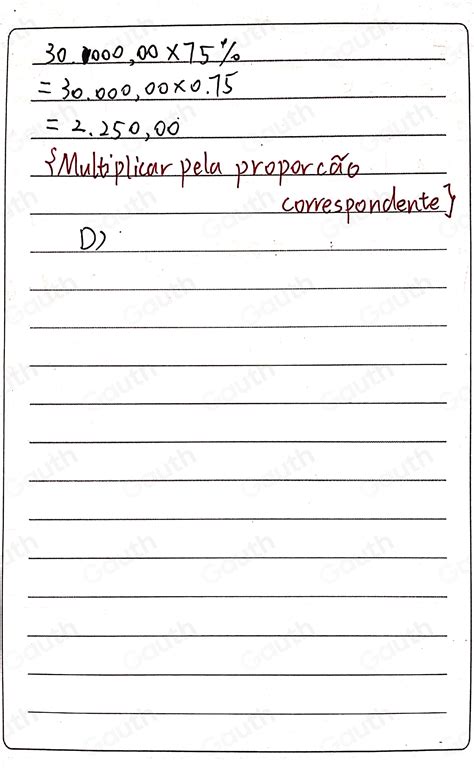 30.000,00 × 75%
= 30.000,00 × 0.75
= 2.250,00
{Multiplicar pela proporcão
correspondente}
D)